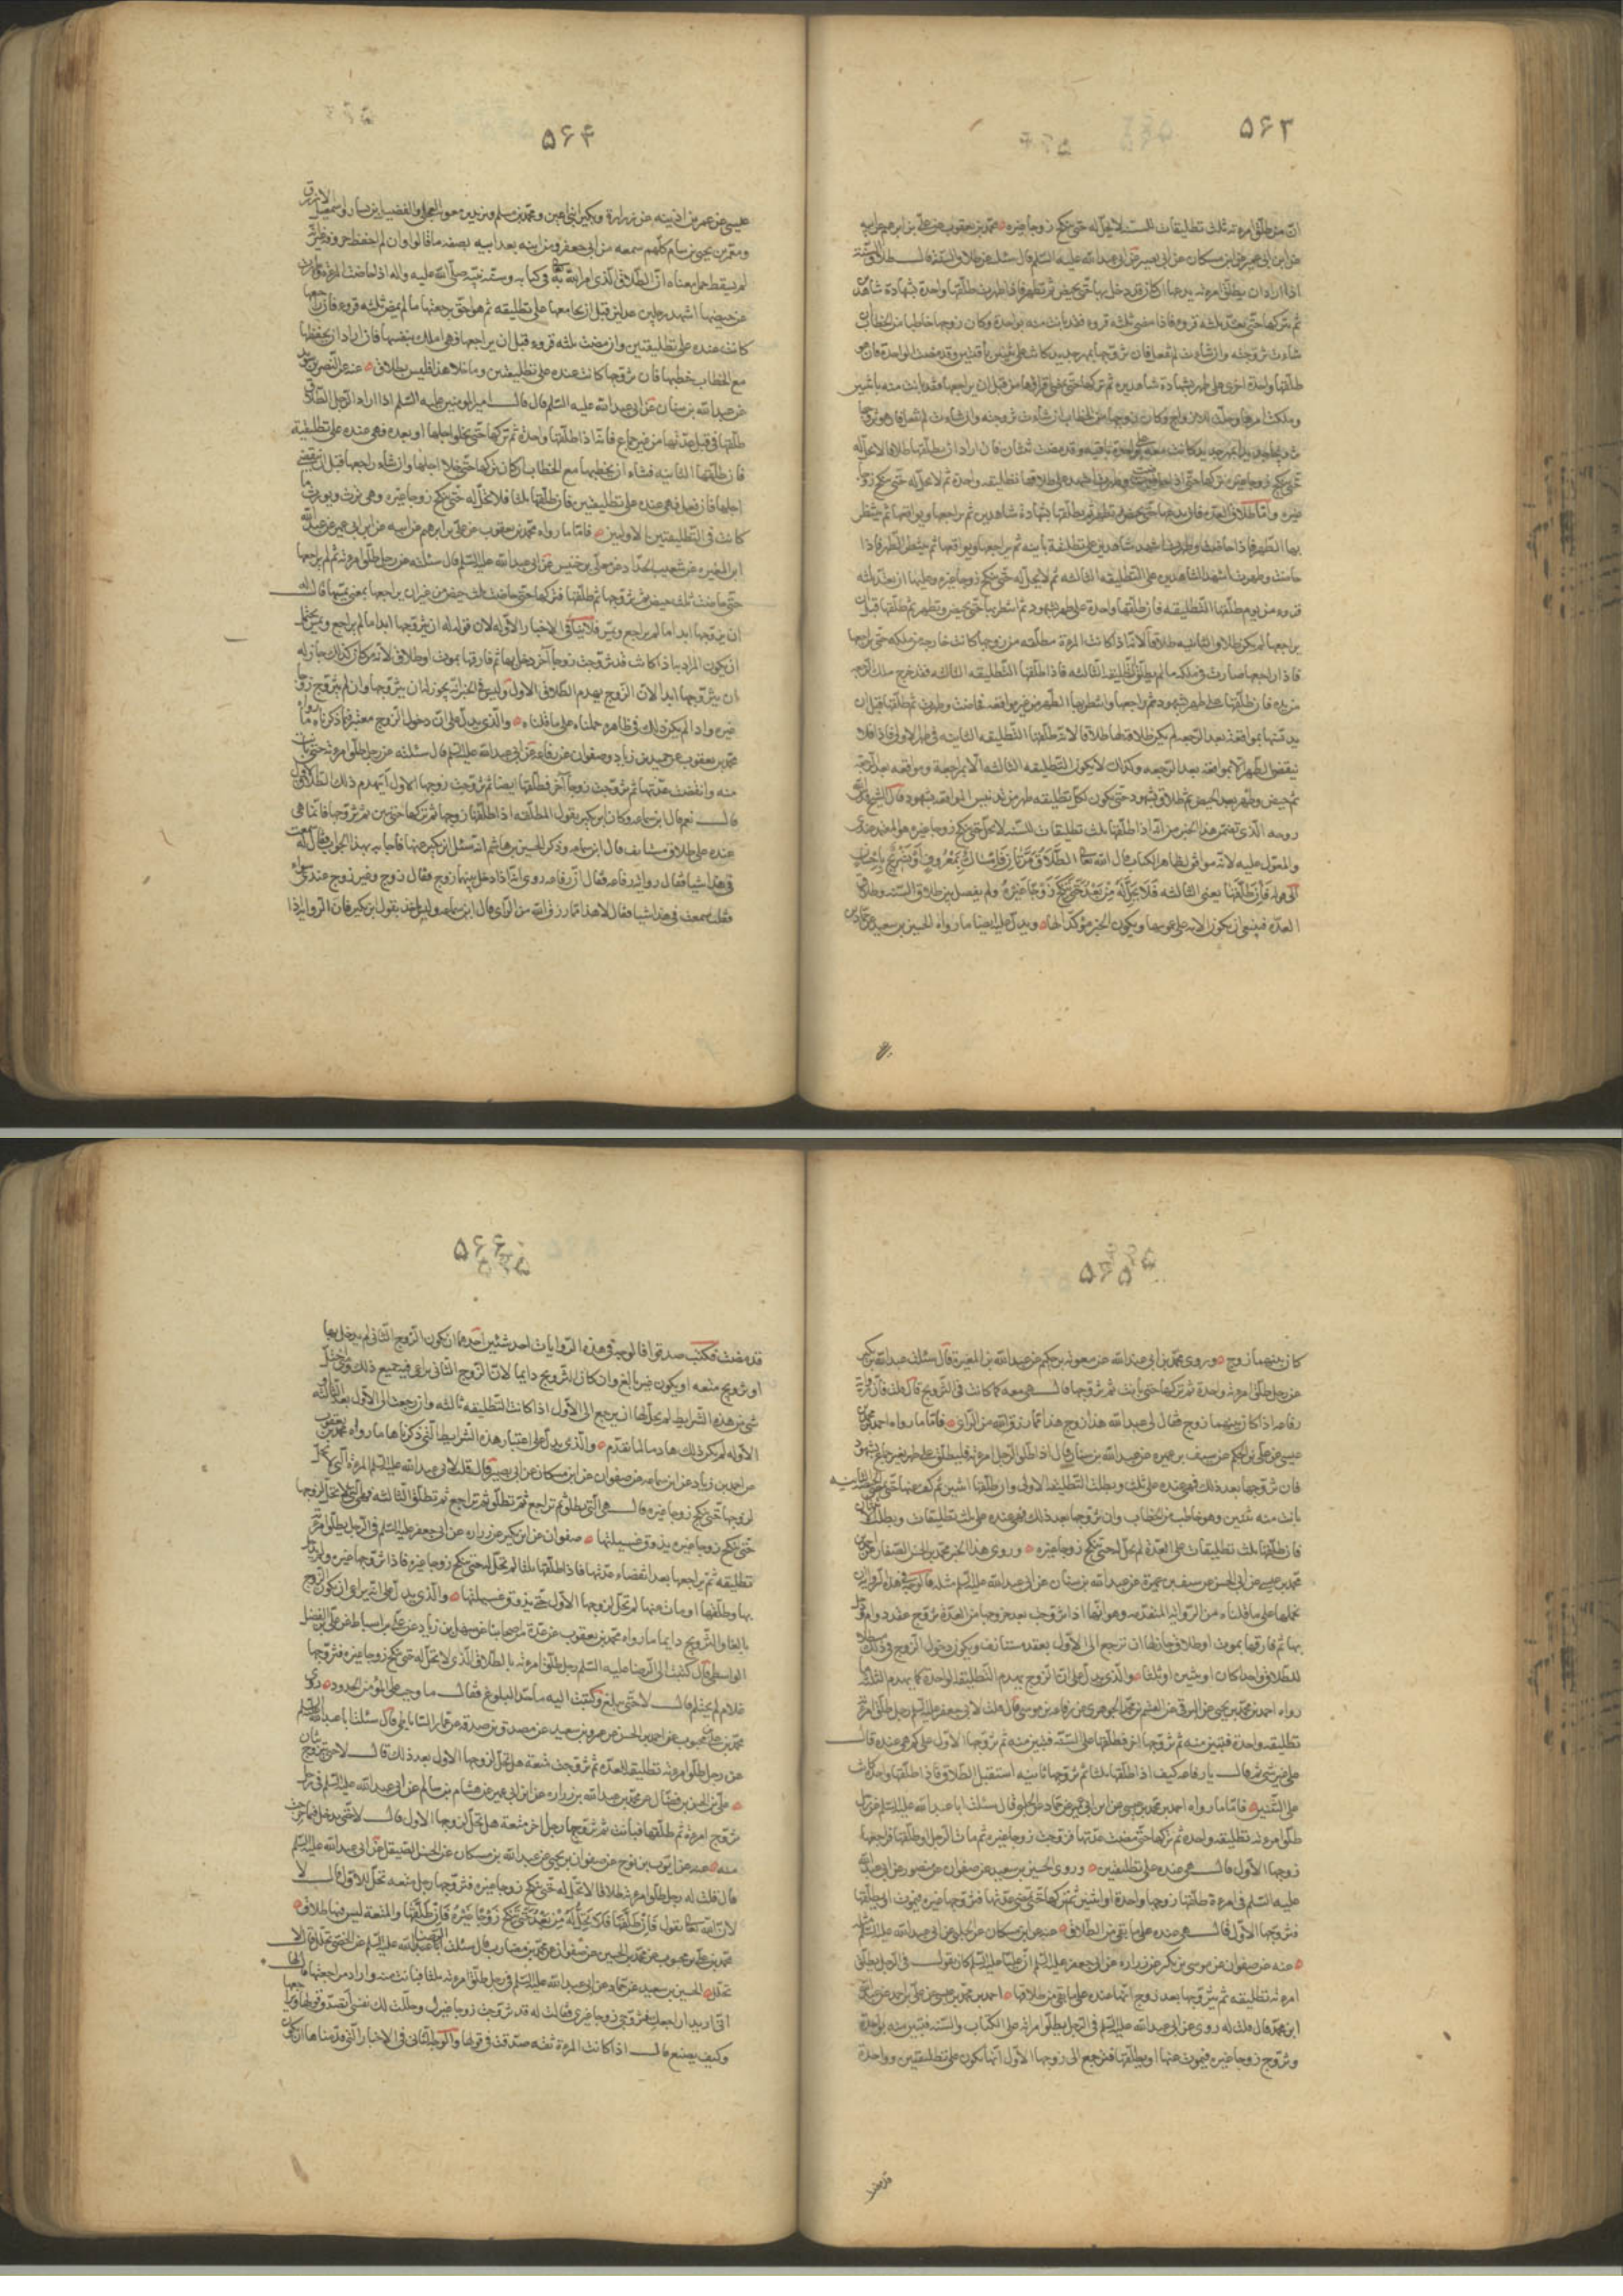 ۵۶۳
ان من طلق امرءته ثلث تطليقات للسنه لا تحل له حتى تنكح زوجا غيره محمد بن يعقوب عن علي بن ابرهيم عن ابيه
عن ابن ابي عمير عن ابن مسكان عن ابي بصير عن ابي عبد الله عليه السلم قال سئلته عن طلاق السنه قال طلاق السنه
اذا اراد ان يطلق امرءته يدعها ان كان قد دخل بها حتى تحيض ثم تطهر فاذا طهرت طلقها واحدة بشهادة شاهدين
ثم يتركها حتى تعتد ثلثه قروء فاذا مضى ثلثه قروء فقد بانت منه بواحدة وكان زوجها خاطبا من الخطاب
شاءت تزوجته وان شاءت لم تفعل فان تزوجها بمهر جديد كانت على ثنتين باقيتين وقد مضت الواحدة فان هو
طلقها واحدة اخرى على طهر بشهادة شاهدين ثم تركها حتى تمضي اقراؤها من قبل ان يراجعها فقد بانت منه باثنتين
وملكت امرها وحلت للازواج وكان زوجها خاطبا من الخطاب ان شاءت تزوجته وان شاءت لم تفعل فان هو تزوجها
تزويجا جديدا بمهر جديد كانت معه على واحدة باقيه وقد مضت ثنتان فان اراد ان يطلقها طلاقا لا تحل له
حتى تنكح زوجا غيره تركها حتى اذا حاضت وطهرت اشهد على طلاقها تطليقه واحدة ثم لا تحل له حتى تنكح زوجا
غيره واما طلاق العده فان يدعها حتى تحيض وتطهر ثم يطلقها بشهادة شاهدين ثم يراجعها ويواقعها ثم ينتظر
بها الطهر فاذا حاضت وطهرت اشهد شاهدين على تطليقة ثانيه ثم يراجعها ويواقعها ثم ينتظر الطهر فاذا
حاضت وطهرت اشهد الشاهدين على التطليقه الثالثه ثم لا تحل له حتى تنكح زوجا غيره وعليها ان تعتد ثلثه
قروء من يوم طلقها التطليقه فان طلقها واحدة على طهر بشهود ثم انتظر بها حتى تحيض وتطهر ثم طلقها قبل ان
يراجعها لم يكن طلاق الثانيه طلاقا لانه اذا كانت المرءة مطلقه من زوجها كانت خارجة من ملكه حتى يراجعها
فاذا راجعها صارت في ملكه ما لم يطلق التطليقه الثالثه فاذا طلقها التطليقه الثالثه فقد خرج ملك الرجعه
من يده فان طلقها على طهر بشهود ثم راجعها وانتظر بها الطهر من غير مواقعه فحاضت وطهرت ثم طلقها قبل ان
يدنسها بمواقعة بعد الرجعه لم يكن طلاقه لها طلاقا لانه طلقها التطليقه الثانيه في طهر الاولى فاذا فلا
ينقضي الطهر الا بمواقعه بعد الرجعه وكذلك لا تكون التطليقه الثالثه الا بمراجعة ومواقعه بعد الرجعه
ثم حيض وطهر بعد الحيض ثم طلاق بشهود حتى يكون لكل تطليقه طهر من تدنيس المواقعه بشهود قال الشيخ
روحه الذي تضمن هذا الخبر من انه اذا طلقها ثلث تطليقات للسنه لا تحل له حتى تنكح زوجا غيره هو المعتمد عندي
والمعول عليه لانه موافق لظاهر الكتاب قال الله تعالى الطلاق مرتان فامساك بمعروف او تسريح باحسان
الى قوله فان طلقها يعني الثالثه فلا تحل له من بعد حتى تنكح زوجا غيره ولم يفصل بين طلاق السنه وطلاق
العده فينبغي ان يكون الايه على عمومها ويكون الخبر مؤكدا لها ويدل عليه ايضا ما رواه الحسين بن سعيد عن حماد بن
۵۶۴
عيسى عن عمر بن اذينه عن زرارة وبكير ابني اعين ومحمد بن مسلم وبريد بن معويه العجلي والفضيل بن يسار واسمعيل الازرق
ومعمر بن يحيى بن سام كلهم سمعه من ابي جعفر ومن ابنه بعد ابيه بصفه ما قالوا وان لم احفظ حروفه غير انه
لم يسقط جمل معناه ان الطلاق الذي امر الله به في كتابه وسنه نبيه صلى الله عليه واله انه اذا حاضت المرءة وطهرت
من حيضها اشهد رجلين عدلين قبل ان يجامعها على تطليقه ثم هو احق برجعتها ما لم يمض ثلثه قروء فان راجعها
كانت عنده على تطليقتين وان مضت ثلثه قروء قبل ان يراجعها فهي املك بنفسها فان اراد ان يخطبها
مع الخطاب خطبها فان تزوجها كانت عنده على تطليقتين وما خلا هذا فليس بطلاق عنه عن النضر بن سويد
عن عبد الله بن سنان عن ابي عبد الله عليه السلم قال قال امير المومنين عليه السلم اذا اراد الرجل الطلاق
طلقها في قبل عدتها من غير جماع فانه اذا طلقها واحدة ثم تركها حتى يخلو اجلها او بعده فهي عنده على تطليقة
فان طلقها الثانيه فشاء ان يخطبها مع الخطاب ان كان تركها حتى خلا اجلها وان شاء راجعها قبل ان ينقضي
اجلها فان فعل فهي عنده على تطليقتين فان طلقها ثلثا فلا تحل له حتى تنكح زوجا غيره وهي ترث وتورث ما
كانت في التطليقتين الاوليين فاما ما رواه محمد بن يعقوب عن علي بن ابرهيم عن ابيه عن ابن ابي عمير عن عبد الله
ابن المغيره عن شعيب الحداد عن معلى بن خنيس عن ابي عبد الله عليه السلم قال سئلته عن رجل طلق امرءته ثم لم يراجعها
حتى حاضت ثلث حيض ثم تزوجها ثم طلقها فتركها حتى حاضت ثلث حيض من غير ان يراجعها يعني يمسها قال له
ان يتزوجها ابدا ما لم يراجع ويمس فلا ينافي الاخبار الاوله لان قوله له ان يتزوجها ابدا ما لم يراجع ويمس يحتمل
ان يكون المراد به اذا كانت قد تزوجت زوجا آخر دخل بها ثم فارقها بموت او طلاق لانه متى كان كذلك جاز له
ان يتزوجها ابدا لان الزوج يهدم الطلاق الاول وليس في الخبر انه يجوز له ان يتزوجها وان لم تتزوج زوجا
غيره واذا لم يكن ذلك في ظاهره حملناه على ما قلناه والذي يدل على ان دخول الزوج معتبر فيما ذكرناه ما رواه
محمد بن يعقوب عن حميد بن زياد وصفوان عن رفاعه عن ابي عبد الله عليه السلم قال سئلته عن رجل طلق امرءته حتى بانت
منه وانقضت عدتها ثم تزوجت زوجا آخر فطلقها ايضا ثم تزوجت زوجها الاول ايهدم ذلك الطلاق الاول
قال نعم قال ابن سماعه وكان ابن بكير يقول المطلقه اذا طلقها زوجها ثم تركها حتى تبين ثم تزوجها فانما هي
عنده على طلاق مستانف قال ابن سماعه وذكر الحسين بن هاشم انه سئل ابن بكير عنها فاجابه بهذا الجواب فقال له سمعت
في هذا شيئا فقال رواية رفاعه فقال ان رفاعه روى انه اذا دخل بينهما زوج فقال زوج وغير زوج عندي سواء
فقلت سمعت في هذا شيئا فقال لا هذا مما رزق الله من الرأي قال ابن سماعه وليس احد يقول بقول ابن بكير فان الروايه اذا
۵۶۵
كان بينهما زوج وروى محمد بن ابي عبد الله عن معويه بن حكيم عن عبد الله بن المغيرة قال سئلت عبد الله بن بكير
عن رجل طلق امرءته واحدة ثم تركها حتى بانت منه ثم تزوجها قال هي معه كما كانت في التزويج قال قلت فان رواية
رفاعه اذا كان بينهما زوج فقال لي عبد الله هذا زوج هذا مما رزق الله من الرأي فاما ما رواه احمد بن محمد بن
عيسى عن علي بن الحكم عن سيف بن عميره عن عبد الله بن سنان قال اذا طلق الرجل امرءته فليطلق على طهر بغير جماع بشهود
فان تزوجها بعد ذلك فهي عنده على ثلث وبطلت التطليقه الاولى وان طلقها اثنتين ثم كف عنها حتى تمضي الحيضه الثالثه
بانت منه بثنتين وهو خاطب من الخطاب وان تزوجها بعد ذلك فهي عنده على ثلث تطليقات وبطلت الاثنتان
فان طلقها ثلث تطليقات على العدة لم تحل له حتى تنكح زوجا غيره وروى هذا الخبر محمد بن الحسن الصفار عن احمد بن
محمد بن عيسى عن ابي الحسن عن سيف بن عميرة عن عبد الله بن سنان عن ابي عبد الله عليه السلم مثله فالوجه في هذه الروايه ان
نحملها على ما قلناه من الروايه المتقدمه وهو انها اذا تزوجت بعد خروجها من العدة تزوج عقد دوام ودخل
بها ثم فارقها بموت او طلاق جاز لها ان ترجع الى الاول بعقد مستانف ويكون دخول الزوج في ذلك مبطلا
للطلاق واحدا كان او ثنتين او ثلثا والذي يدل على ان الزوج يهدم التطليقه الواحدة كما يهدم الثلث ما
رواه احمد بن محمد بن يحيى عن البرقي عن القسم بن محمد الجوهري عن رفاعه بن موسى قال قلت لابي عبد الله عليه السلم رجل طلق امرءته
تطليقه واحدة فتبين منه ثم تزوجها اخر فطلقها على السنه فتبين منه ثم تزوجها الاول على كم هي عنده قال
على غير شئ ثم قال يا رفاعه كيف اذا طلقها ثلثا ثم تزوجها ثانيه استقبل الطلاق فاذا طلقها واحدة كانت
على اثنتين فاما ما رواه احمد بن محمد بن عيسى عن ابن ابي عمير عن حماد عن الحلبي قال سئلت ابا عبد الله عليه السلم عن رجل
طلق امرءته تطليقه واحدة ثم تركها حتى مضت عدتها فتزوجت زوجا غيره ثم مات الرجل او طلقها فراجعها
زوجها الاول قال هي عنده على تطليقتين وروى الحسين بن سعيد عن صفوان عن منصور عن ابي عبد الله
عليه السلم في امرءة طلقها زوجها واحدة او اثنتين ثم تركها حتى تمضي عدتها فتزوجها غيره فيموت او يطلقها
فتزوجها الاول قال هي عنده على ما بقي من الطلاق عنه عن ابن مسكان عن الحلبي عن ابي عبد الله عليه السلم مثله
عنه عن صفوان عن موسى بن بكر عن زراره عن ابي جعفر عليه السلم ان عليا عليه السلم كان يقول في الرجل يطلق
امرءته تطليقه ثم يتزوجها بعد زوج انها عنده على ما بقي من طلاقها احمد بن محمد بن عيسى عن علي بن احمد عن عبد الله
ابن محمد قال قلت له روي عن ابي عبد الله عليه السلم في الرجل يطلق امرءته على الكتاب والسنه فتبين منه بواحدة
وتزوج زوجا غيره فيموت عنها او يطلقها فترجع الى زوجها الاول انها تكون على تطليقتين وواحدة
قد مضت
۵۶۶
قد مضت فكتب صدقوا فالوجه في هذه الروايات احد شيئين احدهما ان يكون الزوج الثاني لم يدخل بها
او تزوج متعه او يكون غير بالغ وان كان التزويج دايما لان الزوج الثاني يراعى فيه جميع ذلك ومتى اختل
شئ من هذه الشرايط لم يحل لها ان يرجع الى الاول اذا كانت التطليقه ثالثه وان رجعت الى الاول بعد الثانيه او
الاوله لم يكن ذلك هادما لما تقدم والذي يدل على اعتبار هذه الشرايط التي ذكرناها ما رواه محمد بن يعقوب
عن احمد بن زياد عن ابن سماعه عن صفوان عن ابن مسكان عن ابي بصير قال قلت لابي عبد الله عليه السلم المرءة التي لا تحل
لزوجها حتى تنكح زوجا غيره قال هي التي تطلق ثم تراجع ثم تطلق ثم تراجع ثم تطلق الثالثه وهي التي لا تحل لزوجها
حتى تنكح زوجا غيره ويذوق عسيلتها صفوان عن ابن بكير عن زراره عن ابي جعفر عليه السلم في الرجل يطلق امرءته
تطليقه ثم يراجعها بعد انقضاء عدتها فاذا طلقها ثلثا لم تحل له حتى تنكح زوجا غيره فاذا تزوجها غيره ولم يدخل
بها وطلقها او مات عنها لم تحل لزوجها الاول حتى يذوق عسيلتها والذي يدل على انه يراعى ان يكون الزوج
بالغا والتزويج دايما ما رواه محمد بن يعقوب عن عدة من اصحابنا عن سهل بن زياد عن علي بن اسباط عن علي بن الفضل
الواسطي قال كتبت الى الرضا عليه السلم رجل طلق امرءته بالطلاق الذي لا تحل له حتى تنكح زوجا غيره فتزوجها
غلام لم يحتلم قال لا حتى يبلغ وكتبت اليه ما حد البلوغ فقال ما وجب على المؤمنين الحدود روى
محمد بن علي بن محبوب عن احمد بن الحسن عن عمرو بن سعيد عن مصدق بن صدقه عن عمار الساباطي قال سئلت ابا عبد الله عليه السلم
عن رجل طلق امرءته تطليقتين للعده ثم تزوجت متعة هل تحل لزوجها الاول بعد ذلك قال لا حتى تزوج بتاتا
علي بن الحسن بن فضال عن محمد بن عبد الله بن زراره عن ابن ابي عمير عن هشام بن سالم عن ابي عبد الله عليه السلم في رجل
تزوج امرءة ثم طلقها فبانت ثم تزوجها رجل اخر متعة هل تحل لزوجها الاول قال لا حتى يدخل فيما خرجت
منه عنه عن ايوب بن نوح عن صفوان بن يحيى عن عبد الله بن مسكان عن الحسن الصيقل عن ابي عبد الله عليه السلم
قال قلت له رجل طلق امرءته طلاقا لا تحل له حتى تنكح زوجا غيره فتزوجها رجل متعه تحل للاول قال لا
لان الله تعالى يقول فان طلقها فلا تحل له من بعد حتى تنكح زوجا غيره فان طلقها والمتعة ليس فيها طلاق
محمد بن علي بن محبوب عن محمد بن الحسين عن صفوان عن محمد بن مضارب قال سئلت ابا عبد الله عليه السلم عن الخصي تحلل قال لا
تحلل الحسين بن سعيد عن حماد عن ابي عبد الله عليه السلم في رجل طلق امرءته ثلثا فبانت منه واراد مراجعتها قال لها
اني اريد اراجعك فتزوجي زوجا غيري فقالت له قد تزوجت زوجا غيرك وحللت لك نفسي ايصدق قولها ويراجعها
وكيف يصنع قال اذا كانت المرءة ثقه صدقت في قولها والوجه الثاني في الاخبار التي قدمناها ان يكون